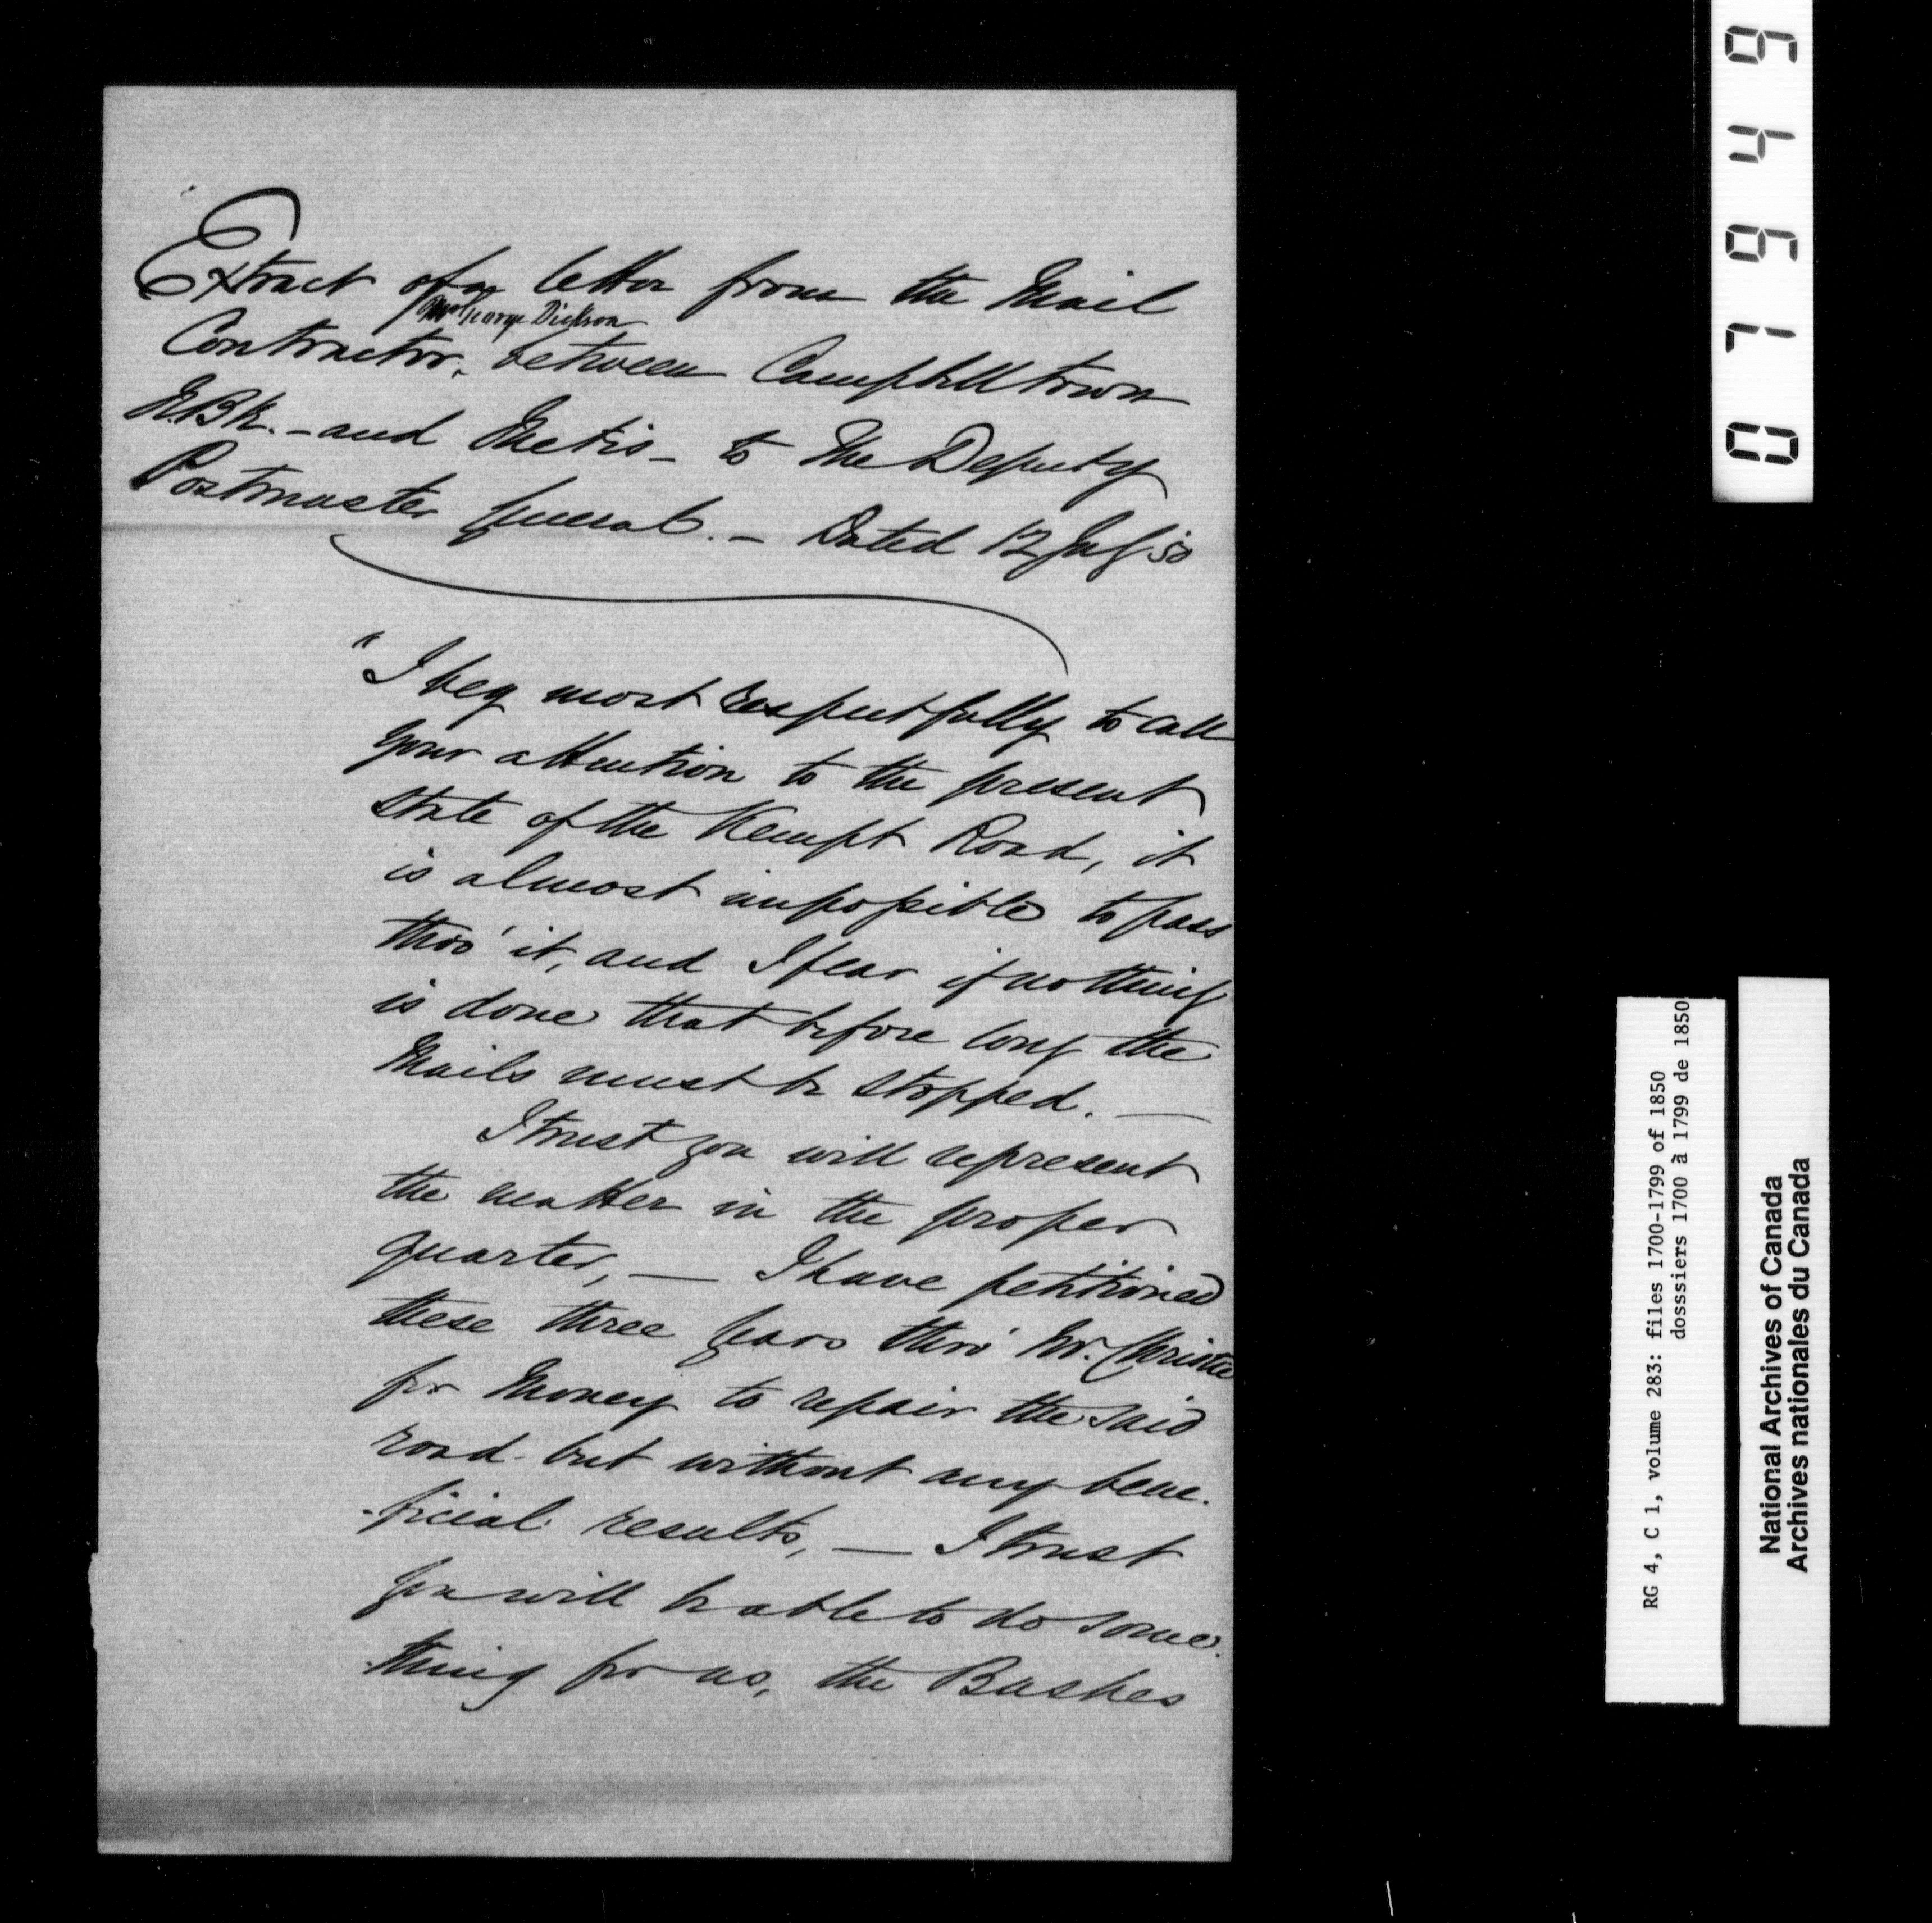 Extract of a letter from the Mail
Mr George Dickson
Contractor, between Campbelltown
N.BK. - and Metis - to the Deputy
Postmaster General. - Dated 12 July 50
"I beg most respectfully to call
your attention to the present
state of the Kempt Road, it
is almost impossible to pass
thro' it, and I fear if nothing
is done that before long the
Mails must be stopped. —
I trust you will represent
the matter in the proper
quarter, — I have petitioned
these three years thro' Mr. Christie
for Money to repair the said
road but without any bene-
-ficial results, — I trust
you will be able to do some-
-thing for us, the Bushes
07949
RG 4, C 1, volume 283: files 1700-1799 of 1850
dosssiers 1700 à 1799 de 1850
National Archives of Canada
Archives nationales du Canada